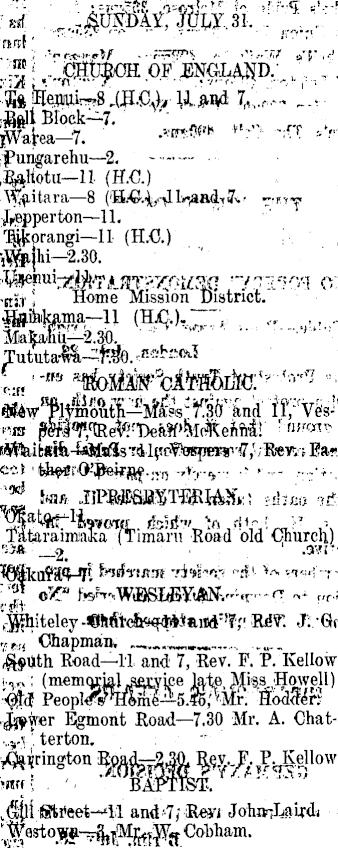 SUNDAY, JULY 31.
CHURCH OF ENGLAND.
Te Henui—8 (H.C.), 11 and 7.
Bell Block—7.
Warea—7.
Pungarehu—2.
Rahotu—11 (H.C.)
Waitara—8 (H.C.), 11 and 7.
Lepperton—11.
Tikorangi—11 (H.C.)
Waihi—2.30.
Urenui—11.
Home Mission District.
Huiakama—11 (H.C.).
Makahu—2.30.
Tututawa—7.30.
ROMAN CATHOLIC.
New Plymouth—Mass 7.30 and 11, Ves-
pers 7, Rev. Dean McKenna.
Waitara—Mass 11, Vespers 7, Rev. Fa-
ther O'Beirne.
PRESBYTERIAN.
Okato—11.
Tataraimaka (Timaru Road old Church)
—2.
Oakura—7.
WESLEYAN.
Whiteley Church—11 and 7, Rev. J. G.
Chapman.
South Road—11 and 7, Rev. F. P. Kellow
(memorial service late Miss Howell)
Old People's Home—5.45, Mr. Hodder.
Lower Egmont Road—7.30 Mr. A. Chat-
terton.
Carrington Road—2.30, Rev. F. P. Kellow
BAPTIST.
Gill Street—11 and 7, Rev. John Laird.
Westown—3, Mr. W. Cobham.